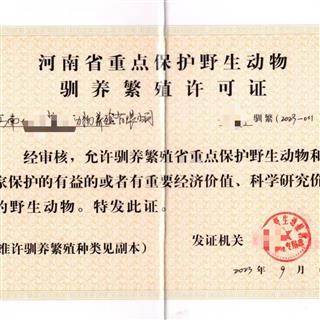 河南省重点保护野生动物
驯养繁殖许可证
驯繁(2023-001
经审核，允许驯养繁殖省重点保护野生动物和
家保护的有益的或者有重要经济价值、科学研究价
的野生动物。特发此证。
准许驯养繁殖种类见副本）
发证机关
2023年9月